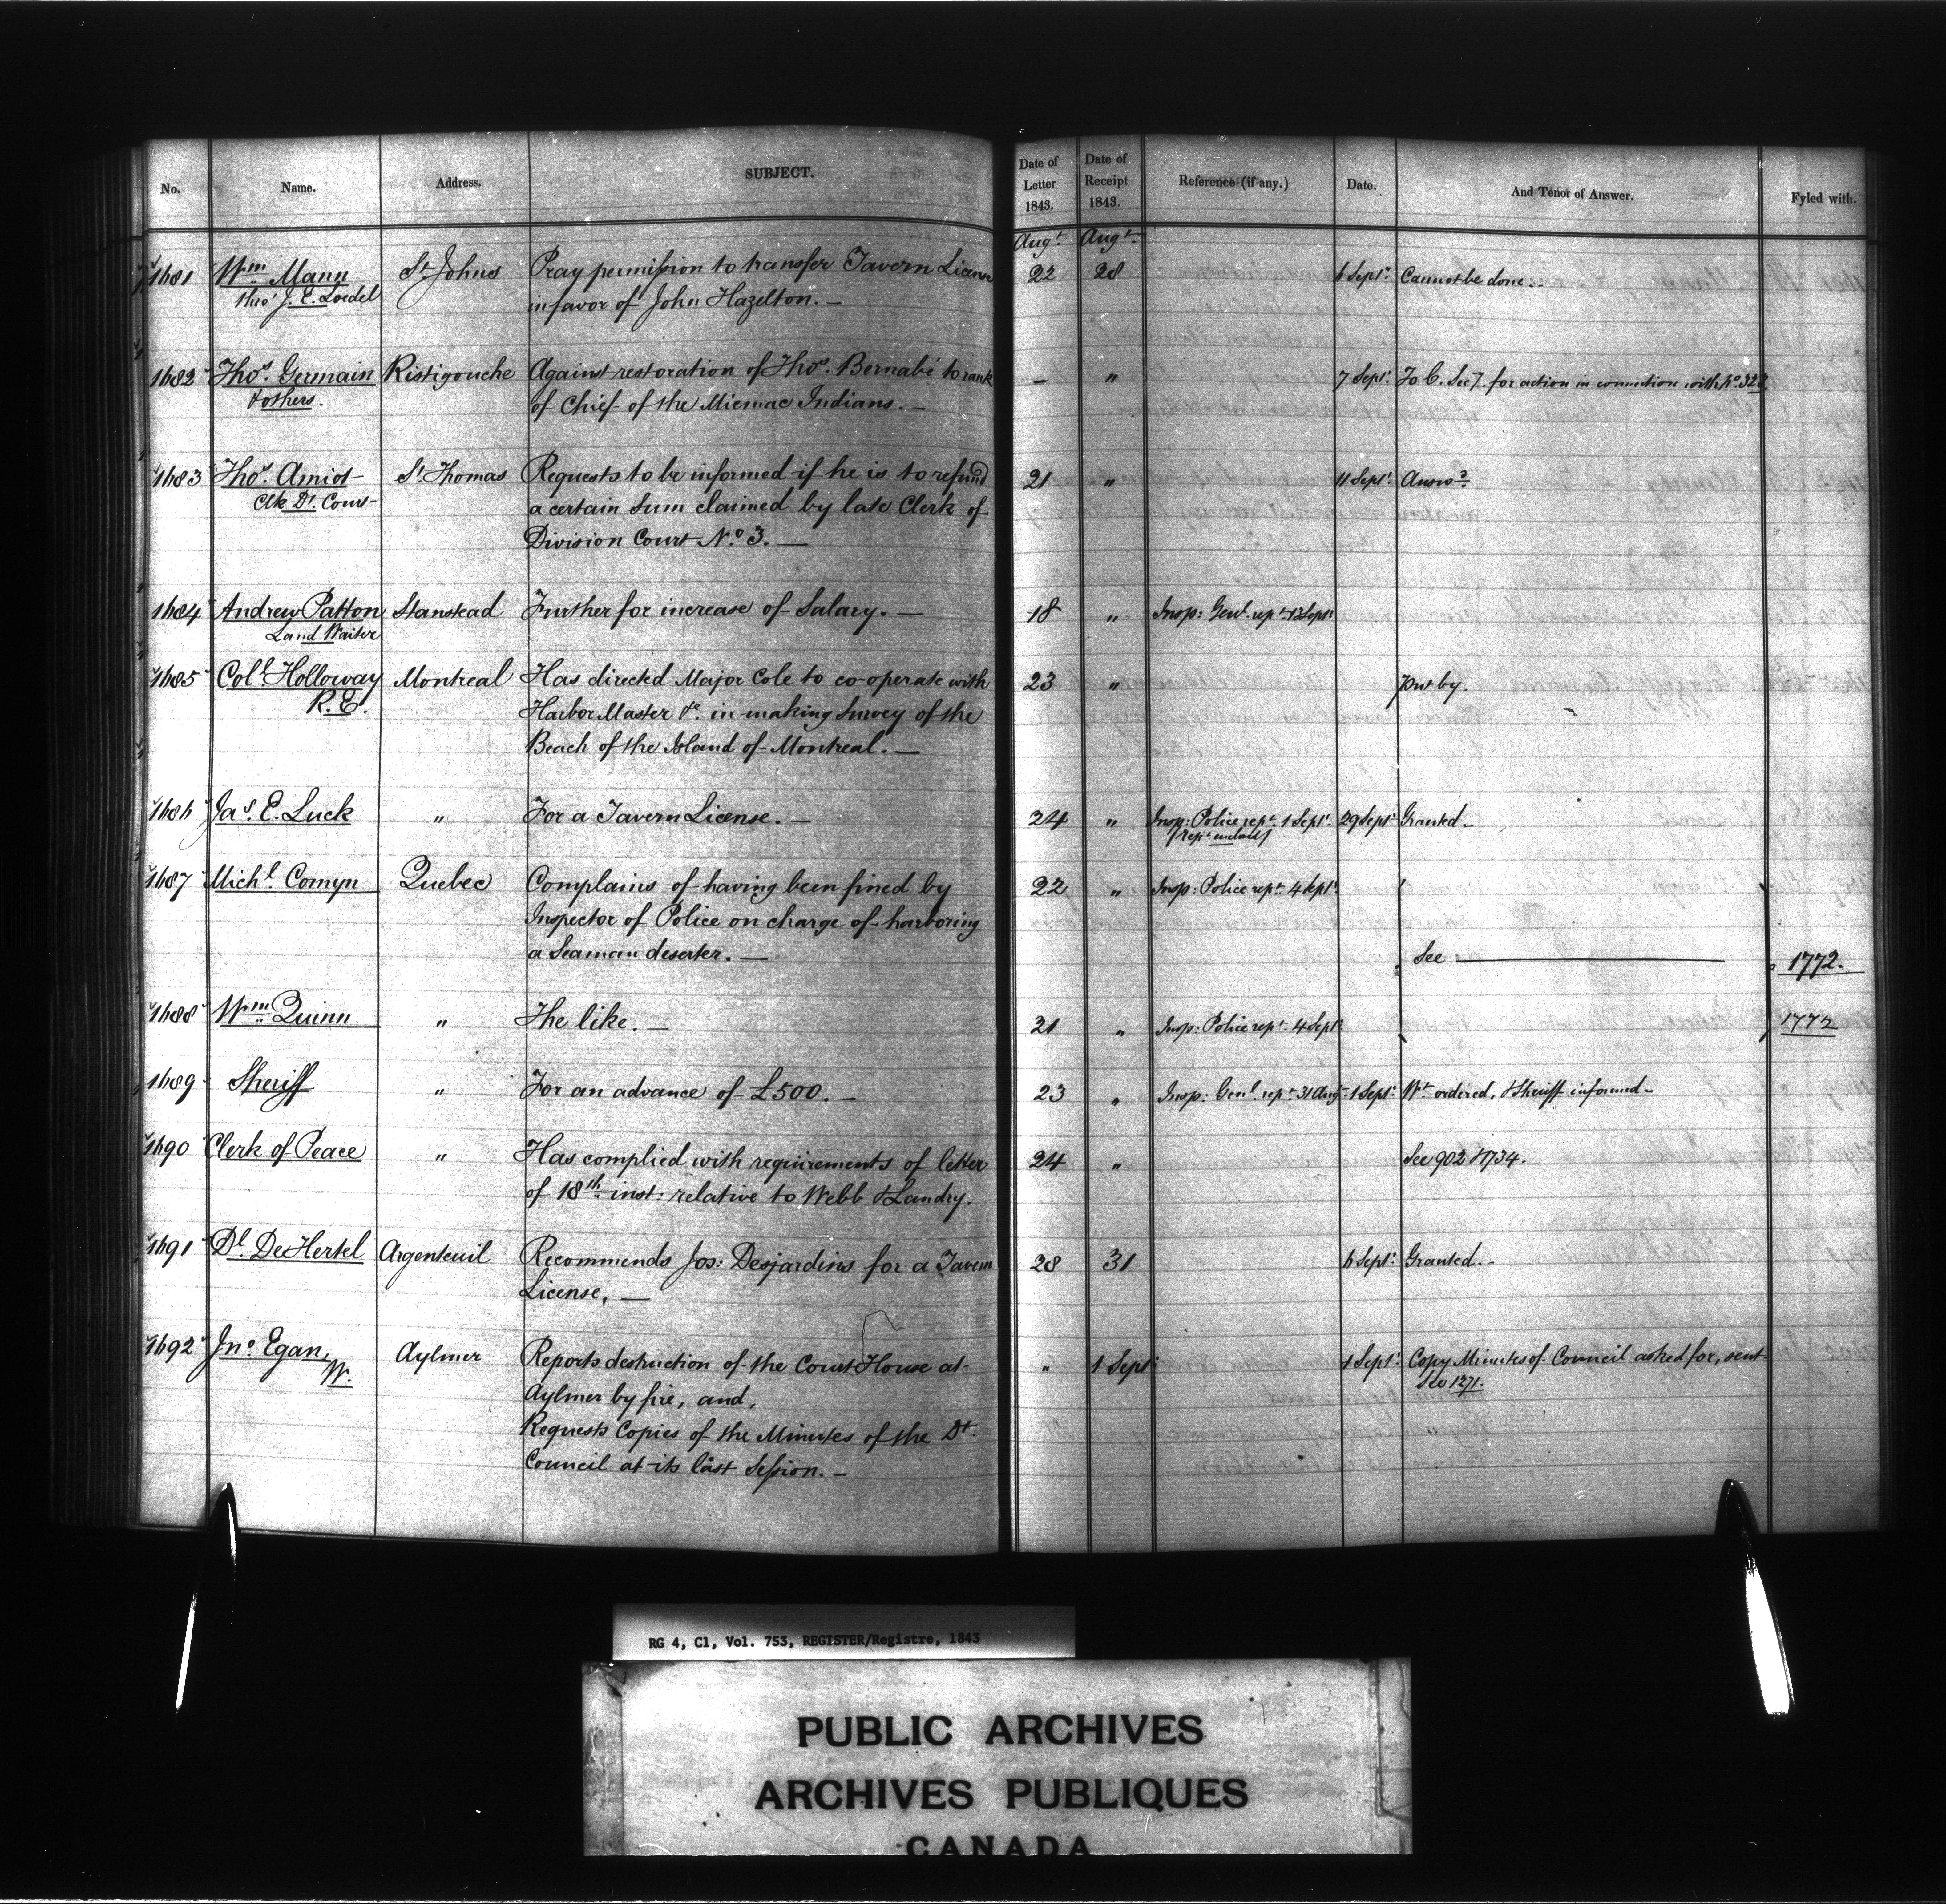 No. Name. Address. SUBJECT. Date of Letter 1843. Date of Receipt 1843. Reference (if any.) Date. And Tenor of Answer. Fyled with.
Augt. Augt.
1681 Wm. Mann St Johns Pray permission to transfer Tavern License 22 28 6 Septr. Cannot be done.
thro' J. E. Loedel in favor of John Hazelton. —
1682 Thos. Germain Ristigouche Against restoration of Thos. Bernabé to rank — " 7 Septr. To C. Secy for action in connection with No. 328
& others. of Chief of the Micmac Indians. —
1683 Thos. Amiot St. Thomas Requests to be informed if he is to refund 21 " 11 Septr. Answd.
Clk Dt. Court a certain sum claimed by late Clerk of
Division Court No. 3. —
1684 Andrew Patton Stanstead Further for increase of Salary. — 18 " Insp: Genl. rept. 13 Septr.
Land Waiter
1685 Coll. Holloway Montreal Has directed Major Cole to co-operate with 23 " Put by.
R. E. Harbor Master &c. in making Survey of the
Beach of the Island of Montreal. —
1686 Jas. E. Luck " For a Tavern License. — 24 " Insp: Police rept. 1 Septr. 29 Septr. Granted —
1687 Michl. Comyn Quebec Complains of having been fined by 22 " Insp: Police rept. 4 Septr.
Inspector of Police on charge of harboring
a Seaman deserter. — See — 1772.
1688 Wm. Quinn " The like. — 21 " Insp: Police rept. 4 Septr. 1772
1689 Sheriff " For an advance of £500. — 23 " Insp: Genl. rept. 31 Augt. 1 Septr. Wt. ordered, & Sheriff informed —
1690 Clerk of Peace " Has complied with requirements of letter 24 " See 902 & 1734.
of 18th. inst: relative to Webb & Landry.
1691 Dl. De Hertel Argenteuil Recommends Jos: Desjardins for a Tavern 28 31 6 Septr. Granted. —
License, —
1692 Jno. Egan, Aylmer Reports destruction of the Court House at " 1 Septr. 1 Septr. Copy Minutes of Council asked for, sent
W. Aylmer by fire, and, See 1271.
Requests Copies of the Minutes of the Dt.
Council at its last Session. —
RG 4, C1, Vol. 753, REGISTER/Registre, 1843
PUBLIC ARCHIVES
ARCHIVES PUBLIQUES
CANADA